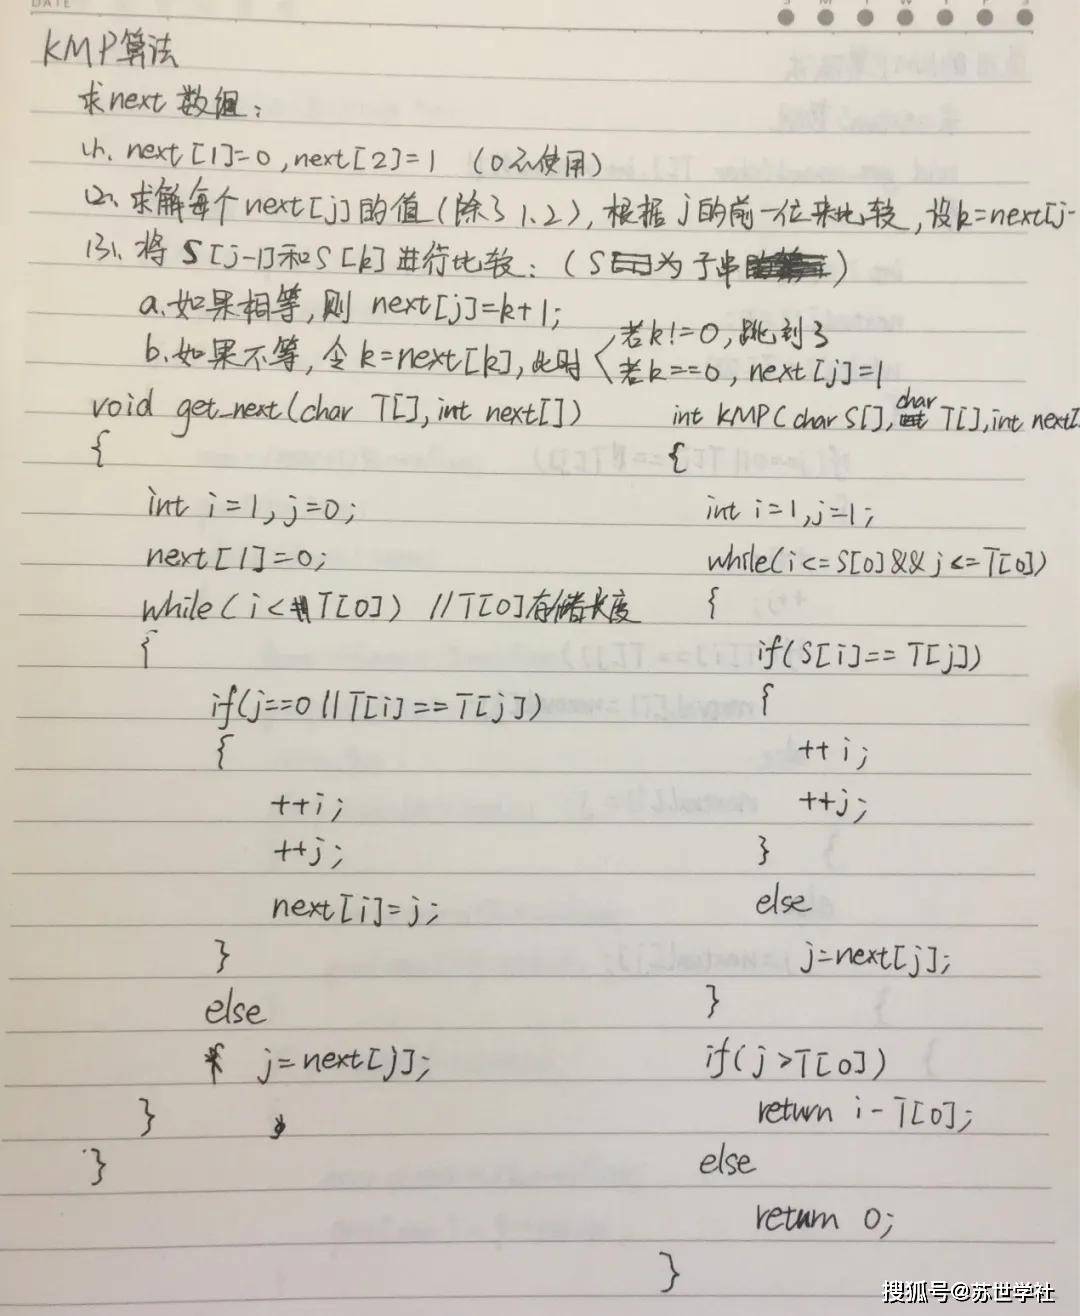 DATE
S M T W T F S
KMP算法
求next数组:
(1). next[1]=0,next[2]=1 (0不使用)
(2). 求解每个next[j]的值(除了1、2),根据j的前一位来比较,设k=next[j-
(3). 将S[j-1]和S[k]进行比较:(S为子串)
a.如果相等,则 next[j]=k+1;
b.如果不等,令k=next[k],此时
若k!=0,跳到3
若k==0,next[j]=1
void get_next(char T[],int next[])
{
int i=1,j=0;
next[1]=0;
while(i<T[0]) //T[0]存储长度
{
if(j==0||T[i]==T[j])
{
++i;
++j;
next[i]=j;
}
else
j=next[j];
}
}
int KMP(char S[],char T[],int next[
{
int i=1,j=1;
while(i<=S[0]&&j<=T[0])
{
if(S[i]==T[j])
{
++i;
++j;
}
else
j=next[j];
}
if(j>T[0])
return i-T[0];
else
return 0;
}
搜狐号@苏世学社